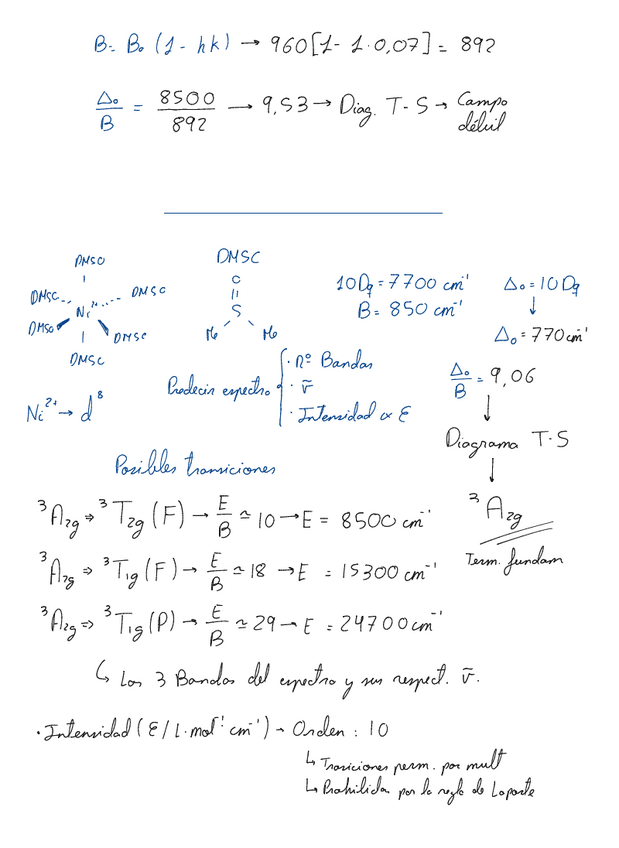 B = B₀ (1 - hk) → 960[1 - 1·0,07] = 892
Δ₀/B = 8500/892 → 9,53 → Diag. T-S → Campo débil
DMSO
DMSO
DMSO
Ni²⁺
DMSO
DMSO
DMSO
DMSO
O
S
Me Me
10Dq = 7700 cm⁻¹
B = 850 cm⁻¹
Δ₀ = 10Dq
↓
Δ₀ = 770 cm⁻¹
Δ₀/B = 9,06
↓
Diagrama T-S
↓
³A₂g
Term. fundam
Ni²⁺ → d⁸
Predecir espectro
· nº Bandas
· ν̄
· Intensidad ∝ ε
Posibles transiciones
³A₂g ⇒ ³T₂g (F) → E/B ≃ 10 → E = 8500 cm⁻¹
³A₂g ⇒ ³T₁g (F) → E/B ≃ 18 → E = 15300 cm⁻¹
³A₂g ⇒ ³T₁g (P) → E/B ≃ 29 → E = 24700 cm⁻¹
↳ Las 3 Bandas del espectro y sus respect. ν̄.
· Intensidad (ε / L·mol⁻¹ cm⁻¹) → Orden : 10
↳ Trasiciones perm. por mult
↳ Prohibida por la regla de Laporte